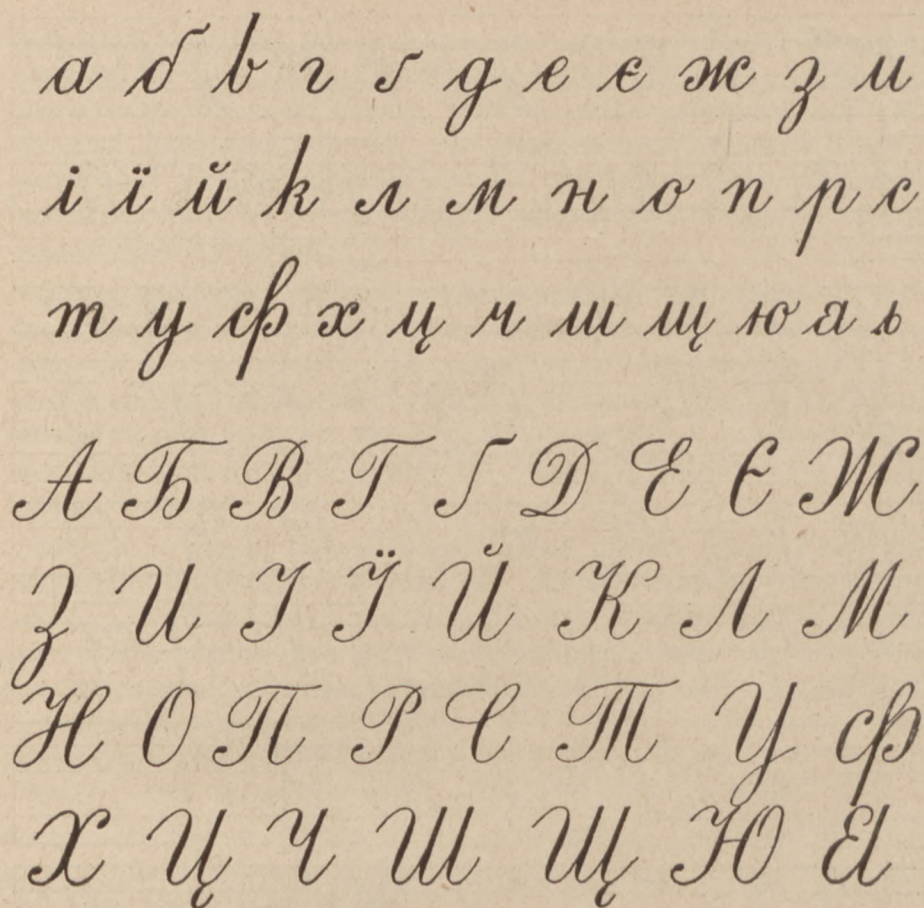 а б в г ґ д е є ж з и
і ї й к л м н о п р с
т у ф х ц ч ш щ ю я ь
А Б В Г Ґ Д Е Є Ж
З И І Ї Й К Л М
Н О П Р С Т У Ф
Х Ц Ч Ш Щ Ю Я